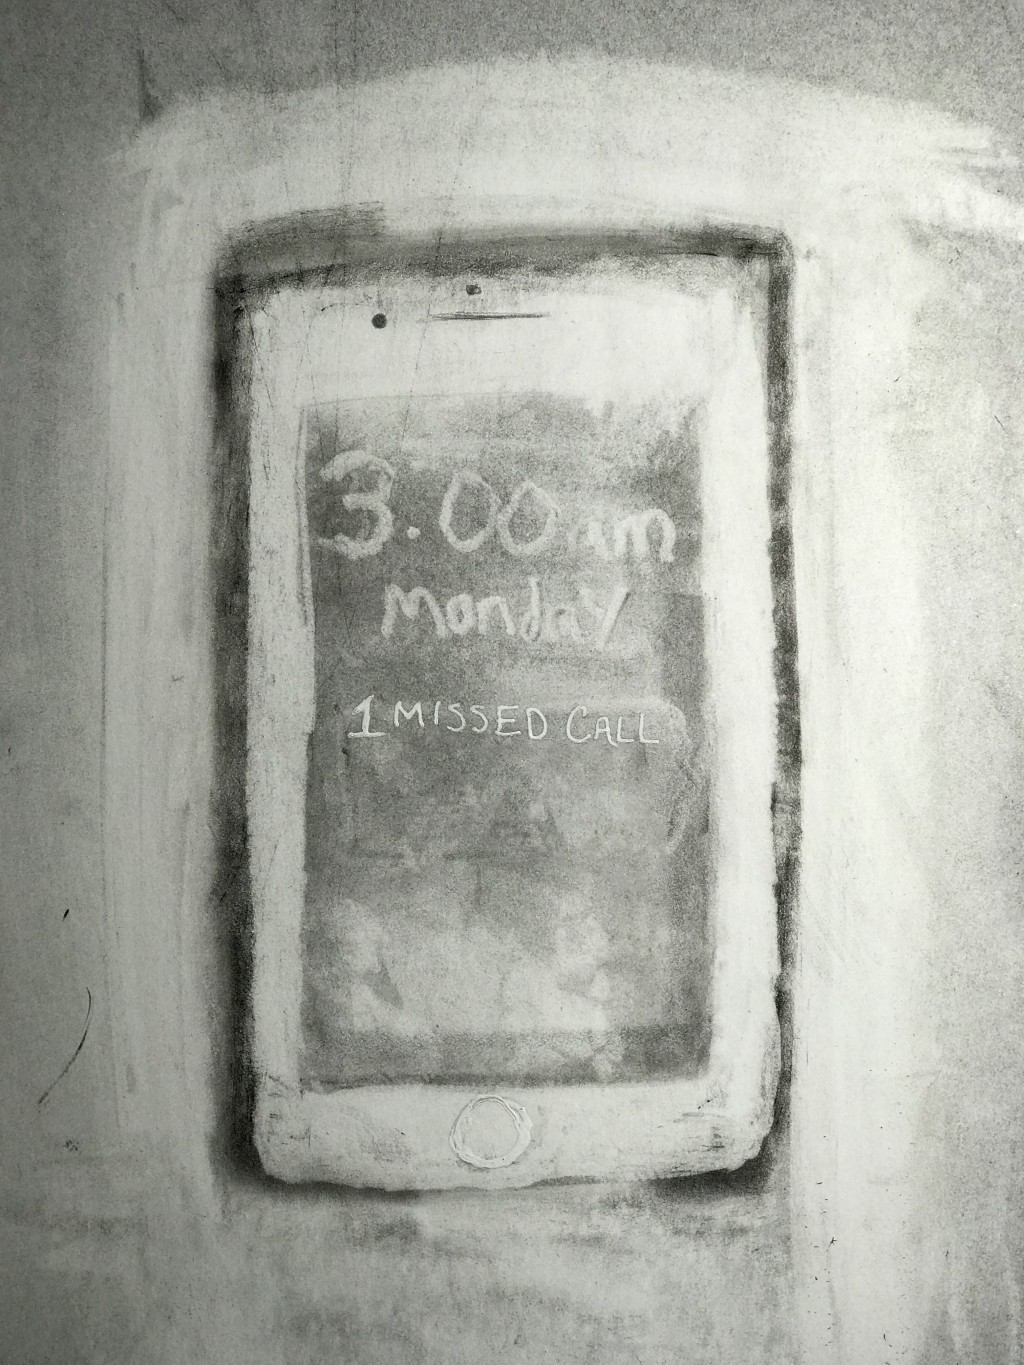 3.00 am
Monday
1 MISSED CALL